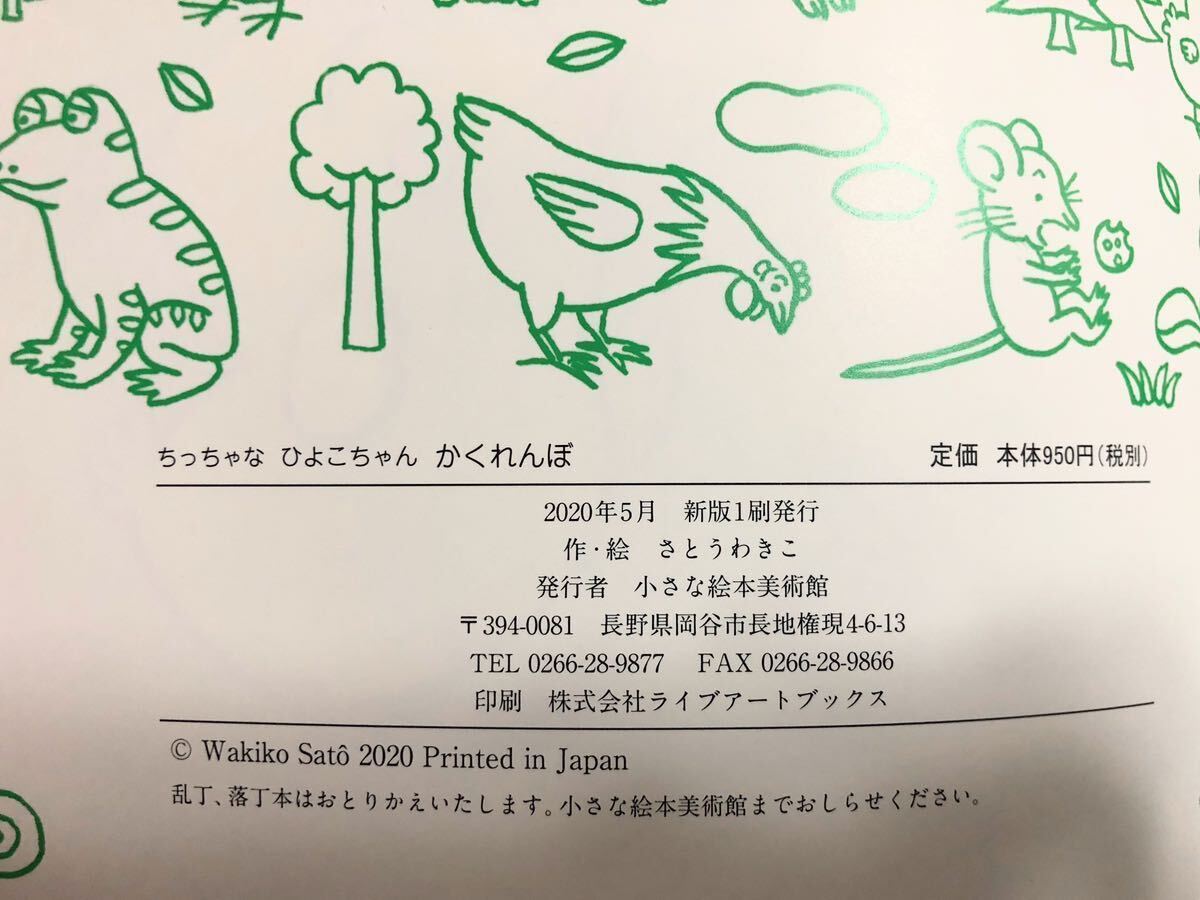 ちっちゃな ひよこちゃん かくれんぼ 定価 本体950円(税別)
2020年5月 新版1刷発行
作・絵 さとうわきこ
発行者 小さな絵本美術館
〒394-0081 長野県岡谷市長地権現4-6-13
TEL 0266-28-9877 FAX 0266-28-9866
印刷 株式会社ライブアートブックス
© Wakiko Satô 2020 Printed in Japan
乱丁、落丁本はおとりかえいたします。小さな絵本美術館までおしらせください。